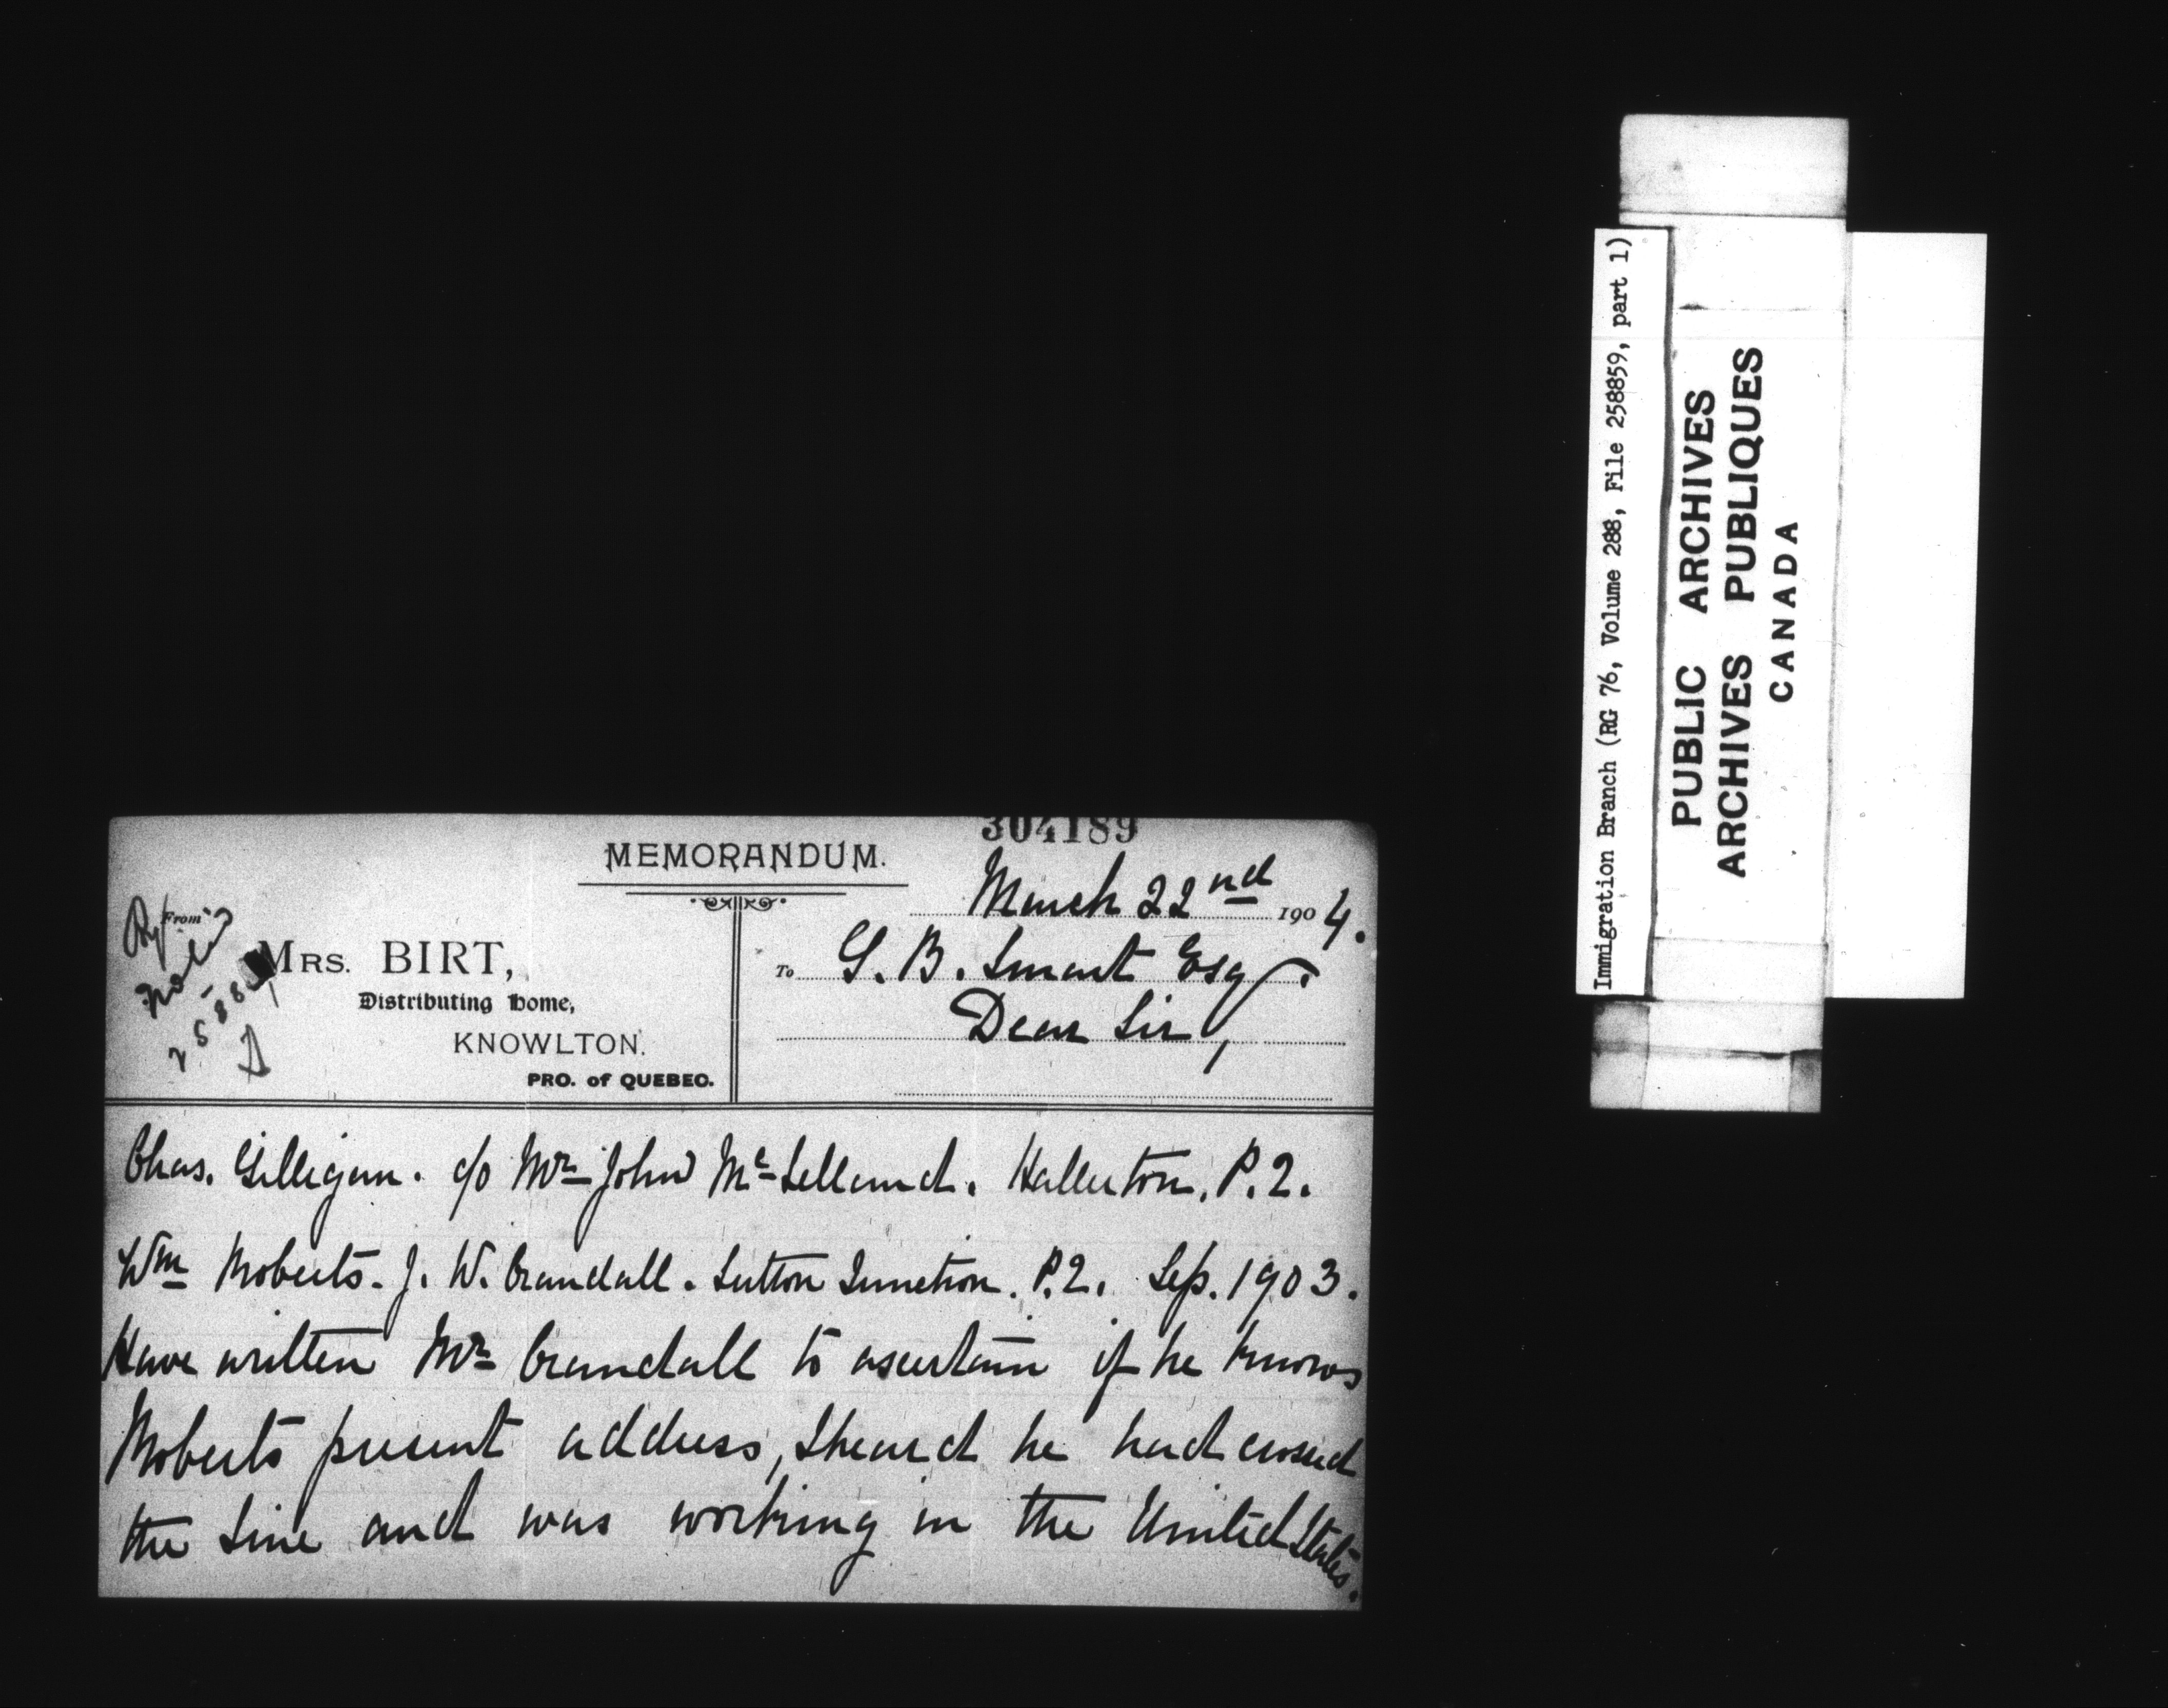 304189
MEMORANDUM.
March 22nd 1904.
From
MRS. BIRT,
Distributing Home,
KNOWLTON.
PRO. of QUEBEC.
To G. B. Smart Esq.
Dear Sir,
Chas. Gilligan. c/o Mr John McLelland. Hallerton. P.2.
Wm Roberts. J. W. Crandall. Sutton Junction. P.2. Sep. 1903.
Have written Mr Crandall to ascertain if he knows
Roberts present address, I heard he had crossed
the Line and was working in the United States.
Immigration Branch (RG 76, Volume 288, File 258859, part 1)
PUBLIC ARCHIVES
ARCHIVES PUBLIQUES
CANADA